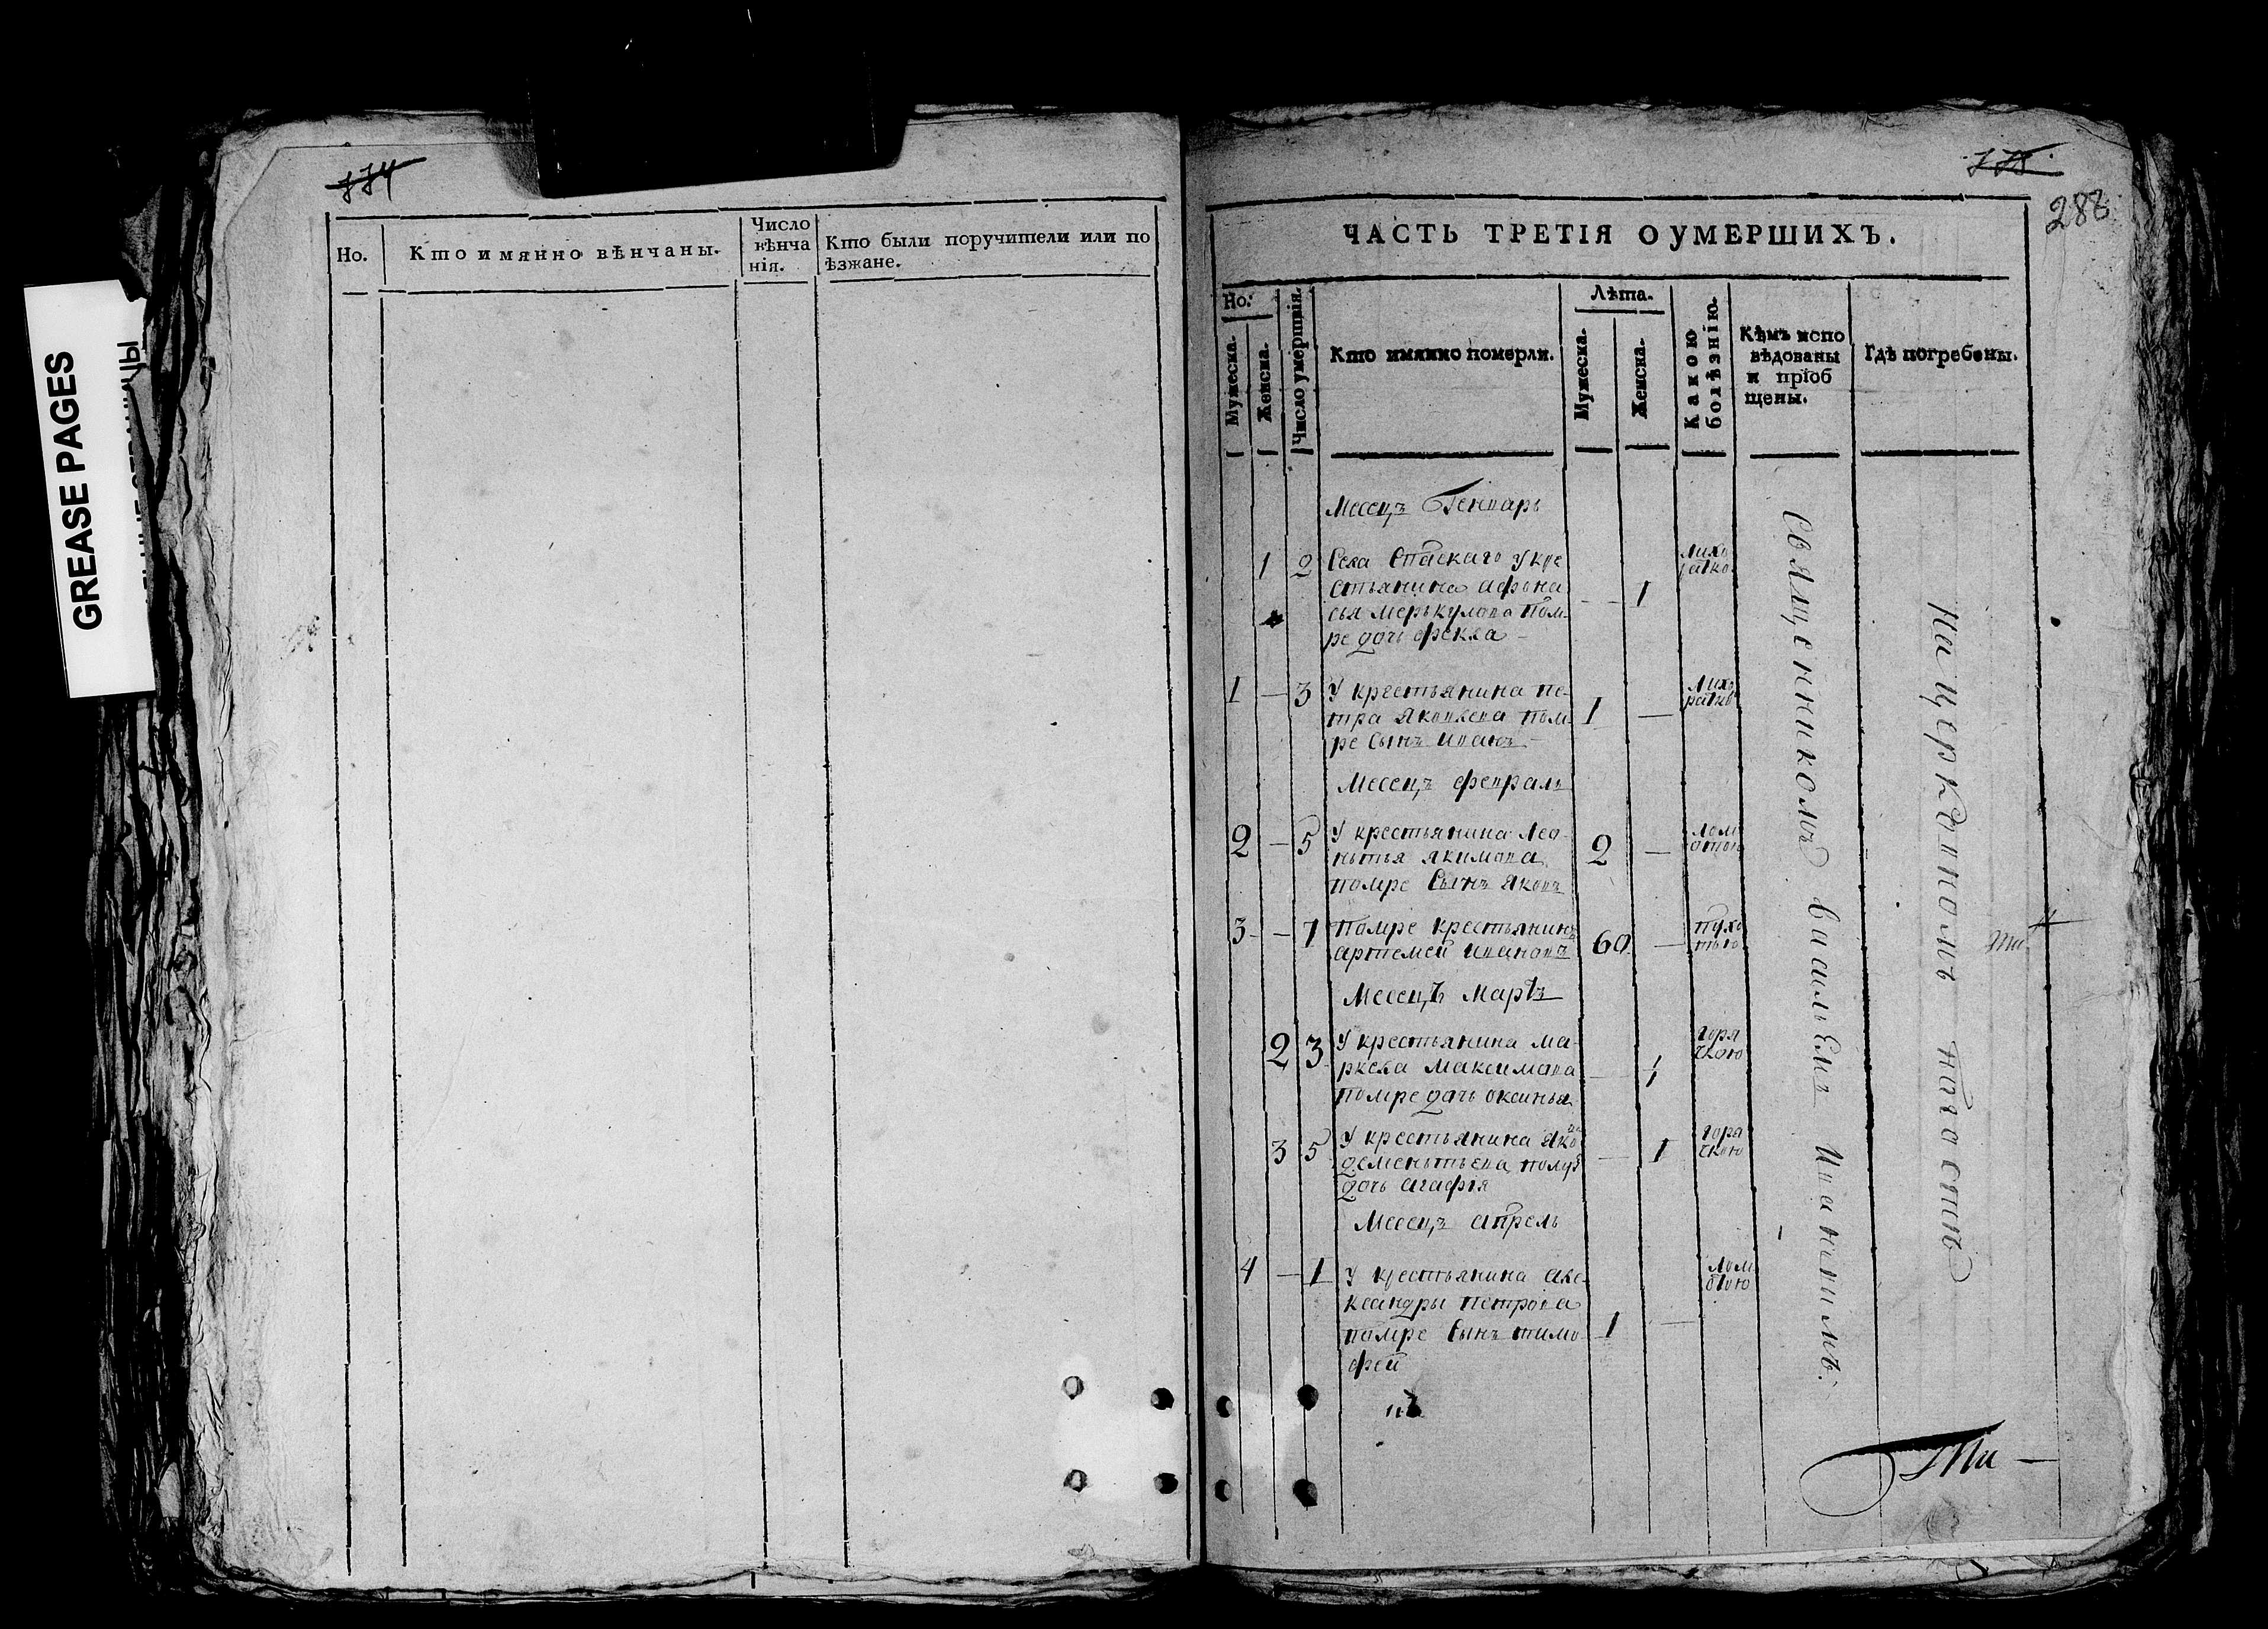 GREASE PAGES
774
Но.
Кто имянно вѣнчаны.
Число
вѣнча
нія.
Кто были поручители или по
ѣзжане.
775
288
ЧАСТЬ ТРЕТІЯ О УМЕРШИХЪ.
Но:
Мужеска.
Женска.
Число умертвія.
Кто имянно померли.
Лѣта.
Мужеска.
Женска.
Какою
болѣзнію.
Кѣмъ испо
вѣдованы
и пріоб
щены.
Гдѣ погребены.
Месецъ Генварь
1 2 Села Спаскаго у кре
стьянина афона
сья Меркулова пом
ре дочь фекла — — 1
Лихо
ратко
1 — 3 У крестьянина пе
тра Яковлева пом
ре сынъ иванъ — 1 —
Лихо
ратко
Месецъ февраль
2 — 5 У крестьянина Лео
нтья якимова
помре сынъ яковъ 2 —
Лом
отою
3 — 7 Помре крестьянинъ
артемей ивановъ 60 —
пухо
тью
Месецъ Мартъ
2 3 У крестьянина Ма
ркела Максимова
помре дочь оксинья — 1
горя
чкою
3 5 У крестьянина яко
дементьева помре
дочь агафья — 1
горя
чкою
Месецъ апрель
4 — 1 У крестьянина але
ксандры петрова
помре сынъ тимо
фей 1 —
Лом
отою
Священникомъ Васильемъ Ивановымъ.
На церковномъ погостѣ